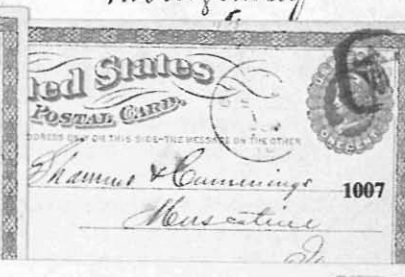 ted States
POSTAL CARD.
ADDRESS ONLY ON THIS SIDE-THE MESSAGE ON THE OTHER
& Cummings
1007
Muscatine